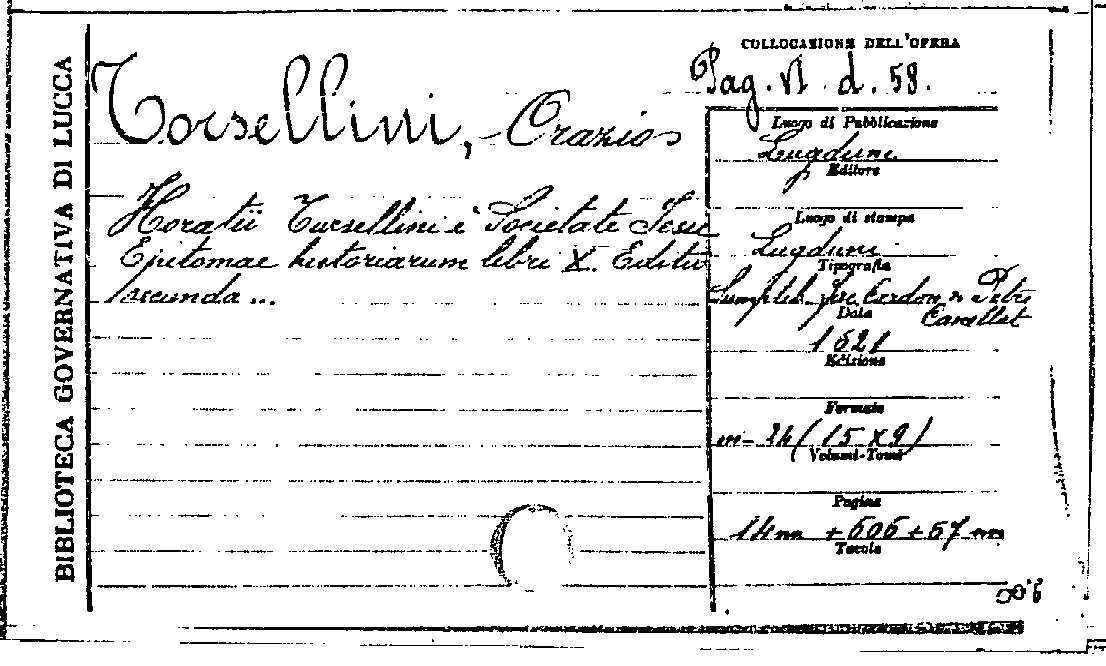 BIBLIOTECA GOVERNATIVA DI LUCCA
COLLOCAZIONE DELL'OPERA
Pag. VI. d. 58.
Torsellini, Orazio
Horatii Tursellini è Societate Jesu
Epitomae historiarum libri X. Editio
secunda...
Luogo di Pubblicazione
Lugduni
Editore
Luogo di stampa
Lugduni
Tipografia
Sumptib. Jac. Cardon & Petri
Cavellat
Data
1621
Edizione
Formato
in- 24 (15 x 9)
Volumi-Tomi
Pagine
14 nn + 606 + 67 nn
Tavole